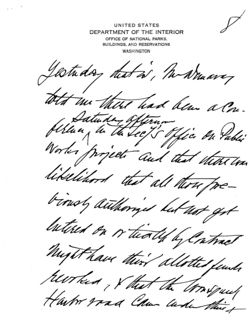 8
UNITED STATES
DEPARTMENT OF THE INTERIOR
OFFICE OF NATIONAL PARKS,
BUILDINGS, AND RESERVATIONS
WASHINGTON
Yesterday that is, Mr Demaray
told me there had been a Con-
Saturday afternoon
ference in the Sec'y's Office on Public
Works projects and that there was
likelihood that all those pre-
viously authorized but not yet
entered on or tied up by Contract
might have their allotted funds
revoked, & that the
Harbor road came under this